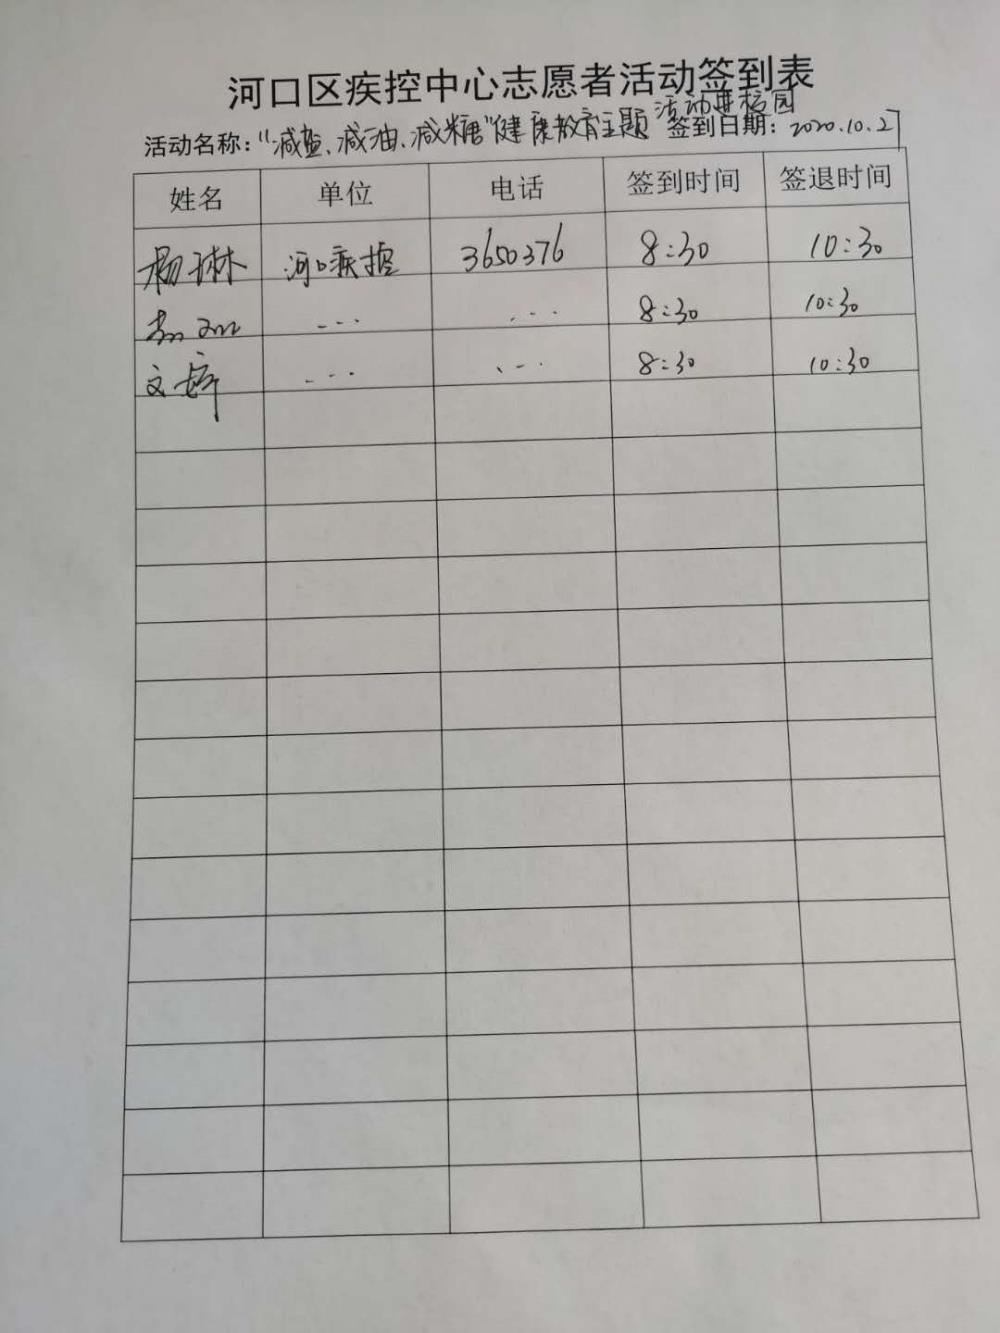 河口区疾控中心志愿者活动签到表
活动名称："减盐、减油、减糖"健康教育主题活动进校园 签到日期：2020.10.27
姓名 单位 电话 签到时间 签退时间
杨琳 河口疾控 3650376 8:30 10:30
--- --- 8:30 10:30
文婷 --- --- 8:30 10:30